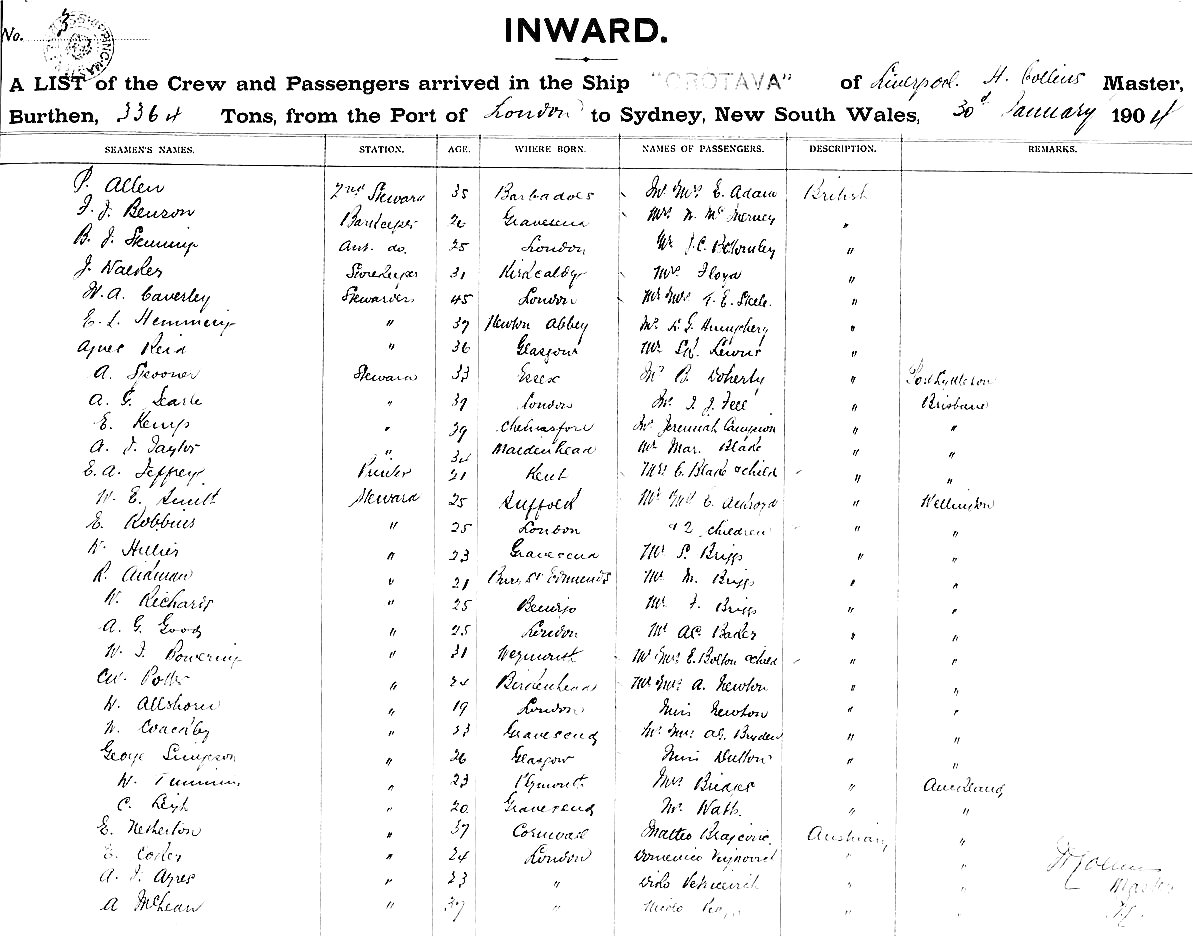 INWARD.
No. 3
A LIST of the Crew and Passengers arrived in the Ship "OROTAVA" of Liverpool. H. Collins Master,
Burthen, 3364 Tons, from the Port of London to Sydney, New South Wales, 30th January 1904
SEAMEN'S NAMES. STATION. AGE. WHERE BORN. NAMES OF PASSENGERS. DESCRIPTION. REMARKS.
P. Allen 2nd Steward 35 Barbadoes Mr Mrs E. Adam British
J. J. Benson Barkeeper 26 Gravesend Mrs "
B. J. 25 London Mr J. C. "
J. Walker Storekeeper 31 Kirkcaldy Mrs Floyd "
W. A. Caverley Stewardess 45 London Mr Mrs F. E. Steele "
E. L. Hemming " 37 Newton Abbey Mr "
Agnes Reid " 36 Glasgow Mr Lewis "
A. Spooner Steward 33 Essex Mr B. Doherty " Port Lyttleton
A. G. Searle " 39 London Mr J. J. Fell " Brisbane
E. Kemp " 39 Chelmsford Mr Jeremiah Campion " "
A. J. Taylor " 34 Maidenhead Mr Mar. Blade " "
E. A. Jeffrey Printer 21 Kent Mrs C. Blade & child " "
W. E. Smith Steward 25 Suffolk Mr Mrs C. " Wellington
E. Robbins " 25 London & 2 children " "
W. Hillier " 23 Gravesend Mr S. Briggs " "
R. Aidman " 21 Bury St Edmunds Mr M. Briggs " "
W. Richards " 25 Mr J. Briggs " "
A. G. Good " 25 London Mr A C Baker " "
W. J. Bowering " 31 Weymouth Mr Mrs E. Bolton & child " "
Potts " 24 Birkenhead Mr Mrs A. Newton " "
W. Allshorn " 19 London Miss Newton " "
W. " 23 Gravesend Mr Mrs Bryden " "
George Simpson " 26 Glasgow Miss Dutton " "
W. Timmins " 23 Plymouth Mrs Bridges " Auckland
C. Leigh " 20 Gravesend Mr Nath. " "
E. Netherton " 37 Cornwall Matteo Brajcovic Austrian "
E. Coster " 24 London Domenico " "
A. J. Ayres " 23 " Vido " "
A McLean " 37 " " "
H Collins
Master